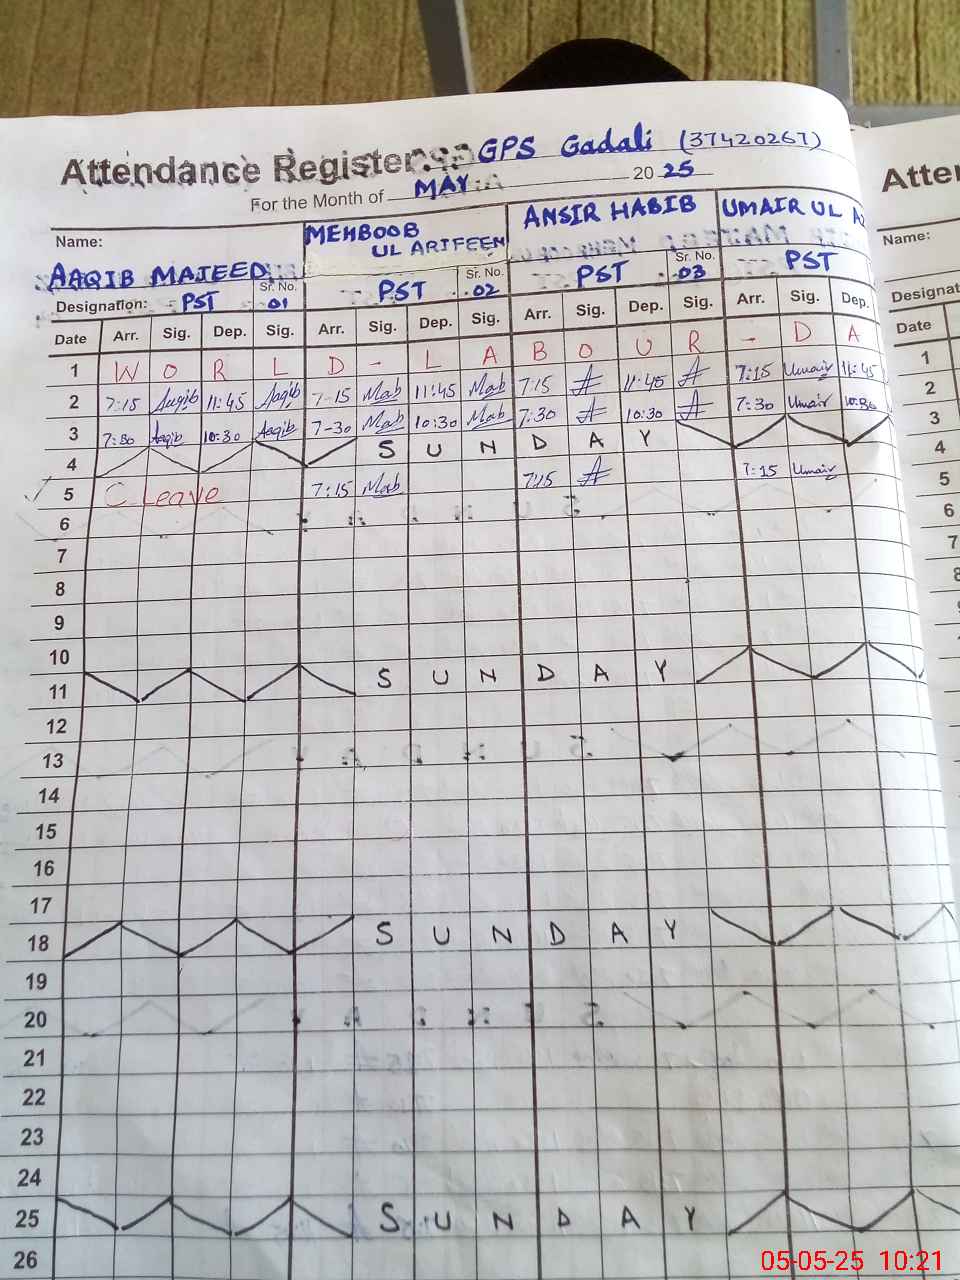 Attendance Register GPS Gadali (37420267)
For the Month of MAY 2025
Name: AAQIB MAJEED MEHBOOB UL ARIFEEN ANSIR HABIB UMAIR UL
Designation: PST Sr. No. 01 PST Sr. No. 02 PST Sr. No. 03 PST
Date Arr. Sig. Dep. Sig. Arr. Sig. Dep. Sig. Arr. Sig. Dep. Sig. Arr. Sig. Dep.
1 W O R L D - L A B O U R - D A
2 7:15 Aaqib 11:45 Aaqib 7-15 Mab 11:45 Mab 7:15 11:45 7:15 Umair 11:45
3 7:30 Aaqib 10:30 Aaqib 7-30 Mab 10:30 Mab 7:30 10:30 7:30 Umair 10:30
4 S U N D A Y
5 C Leave 7:15 Mab 7:15 7:15 Umair
6
7
8
9
10
11 S U N D A Y
12
13
14
15
16
17
18 S U N D A Y
19
20
21
22
23
24
25 S U N D A Y
26
Atten
Name:
Designat
Date
1
2
3
4
5
6
7
8
05-05-25 10:21